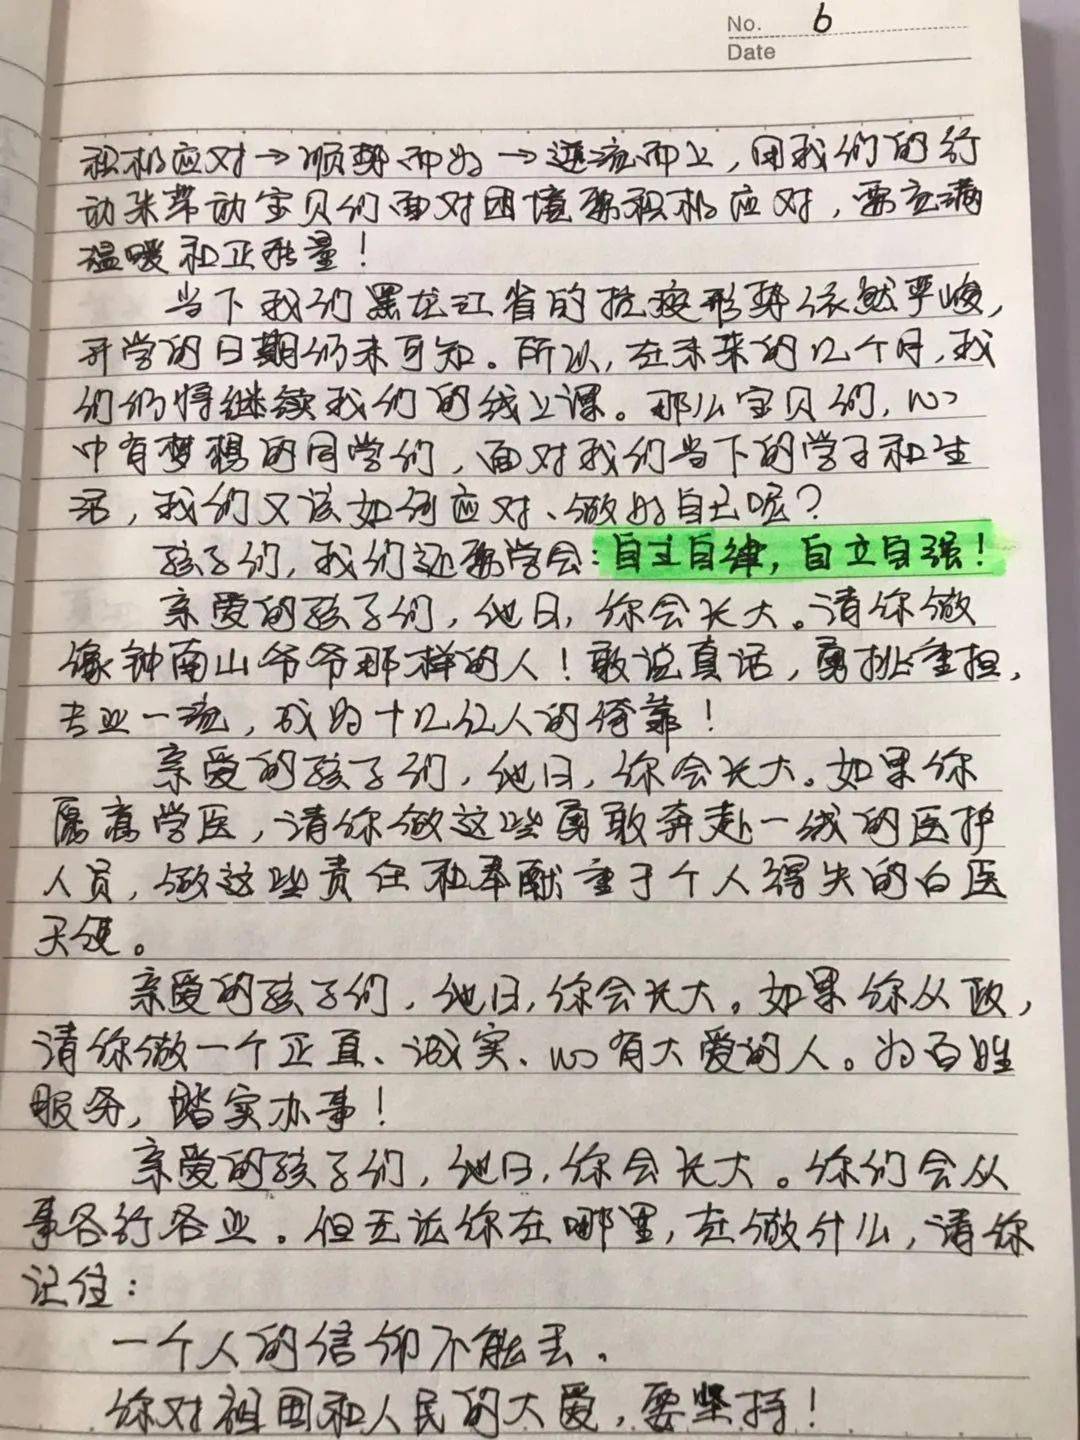 No. 6
Date
积极应对→顺势而为→逆流而上，用我们的行
动来带动宝贝们面对困境要积极应对，要充满
温暖和正能量！
当下我们黑龙江省的抗疫形势依然严峻，
开学的日期仍未可知。所以，在未来的几个月，我
们仍将继续我们的线上课。那么宝贝们，心
中有梦想的同学们，面对我们当下的学习和生
活，我们又该如何应对、做好自己呢？
孩子们，我们还要学会：自主自律，自立自强！
亲爱的孩子们，他日，你会长大。请你做
像钟南山爷爷那样的人！敢说真话，勇挑重担，
专业一流，成为十几亿人的倚靠！
亲爱的孩子们，他日，你会长大。如果你
愿意学医，请你做这些勇敢奔赴一线的医护
人员，做这些责任和奉献重于个人得失的白医
天使。
亲爱的孩子们，他日，你会长大。如果你从政，
请你做一个正直、诚实、心有大爱的人。为百姓
服务，踏实办事！
亲爱的孩子们，他日，你会长大。你们会从
事各行各业。但无论你在哪里，在做什么，请你
记住：
一个人的信仰不能丢。
你对祖国和人民的大爱，要坚持！